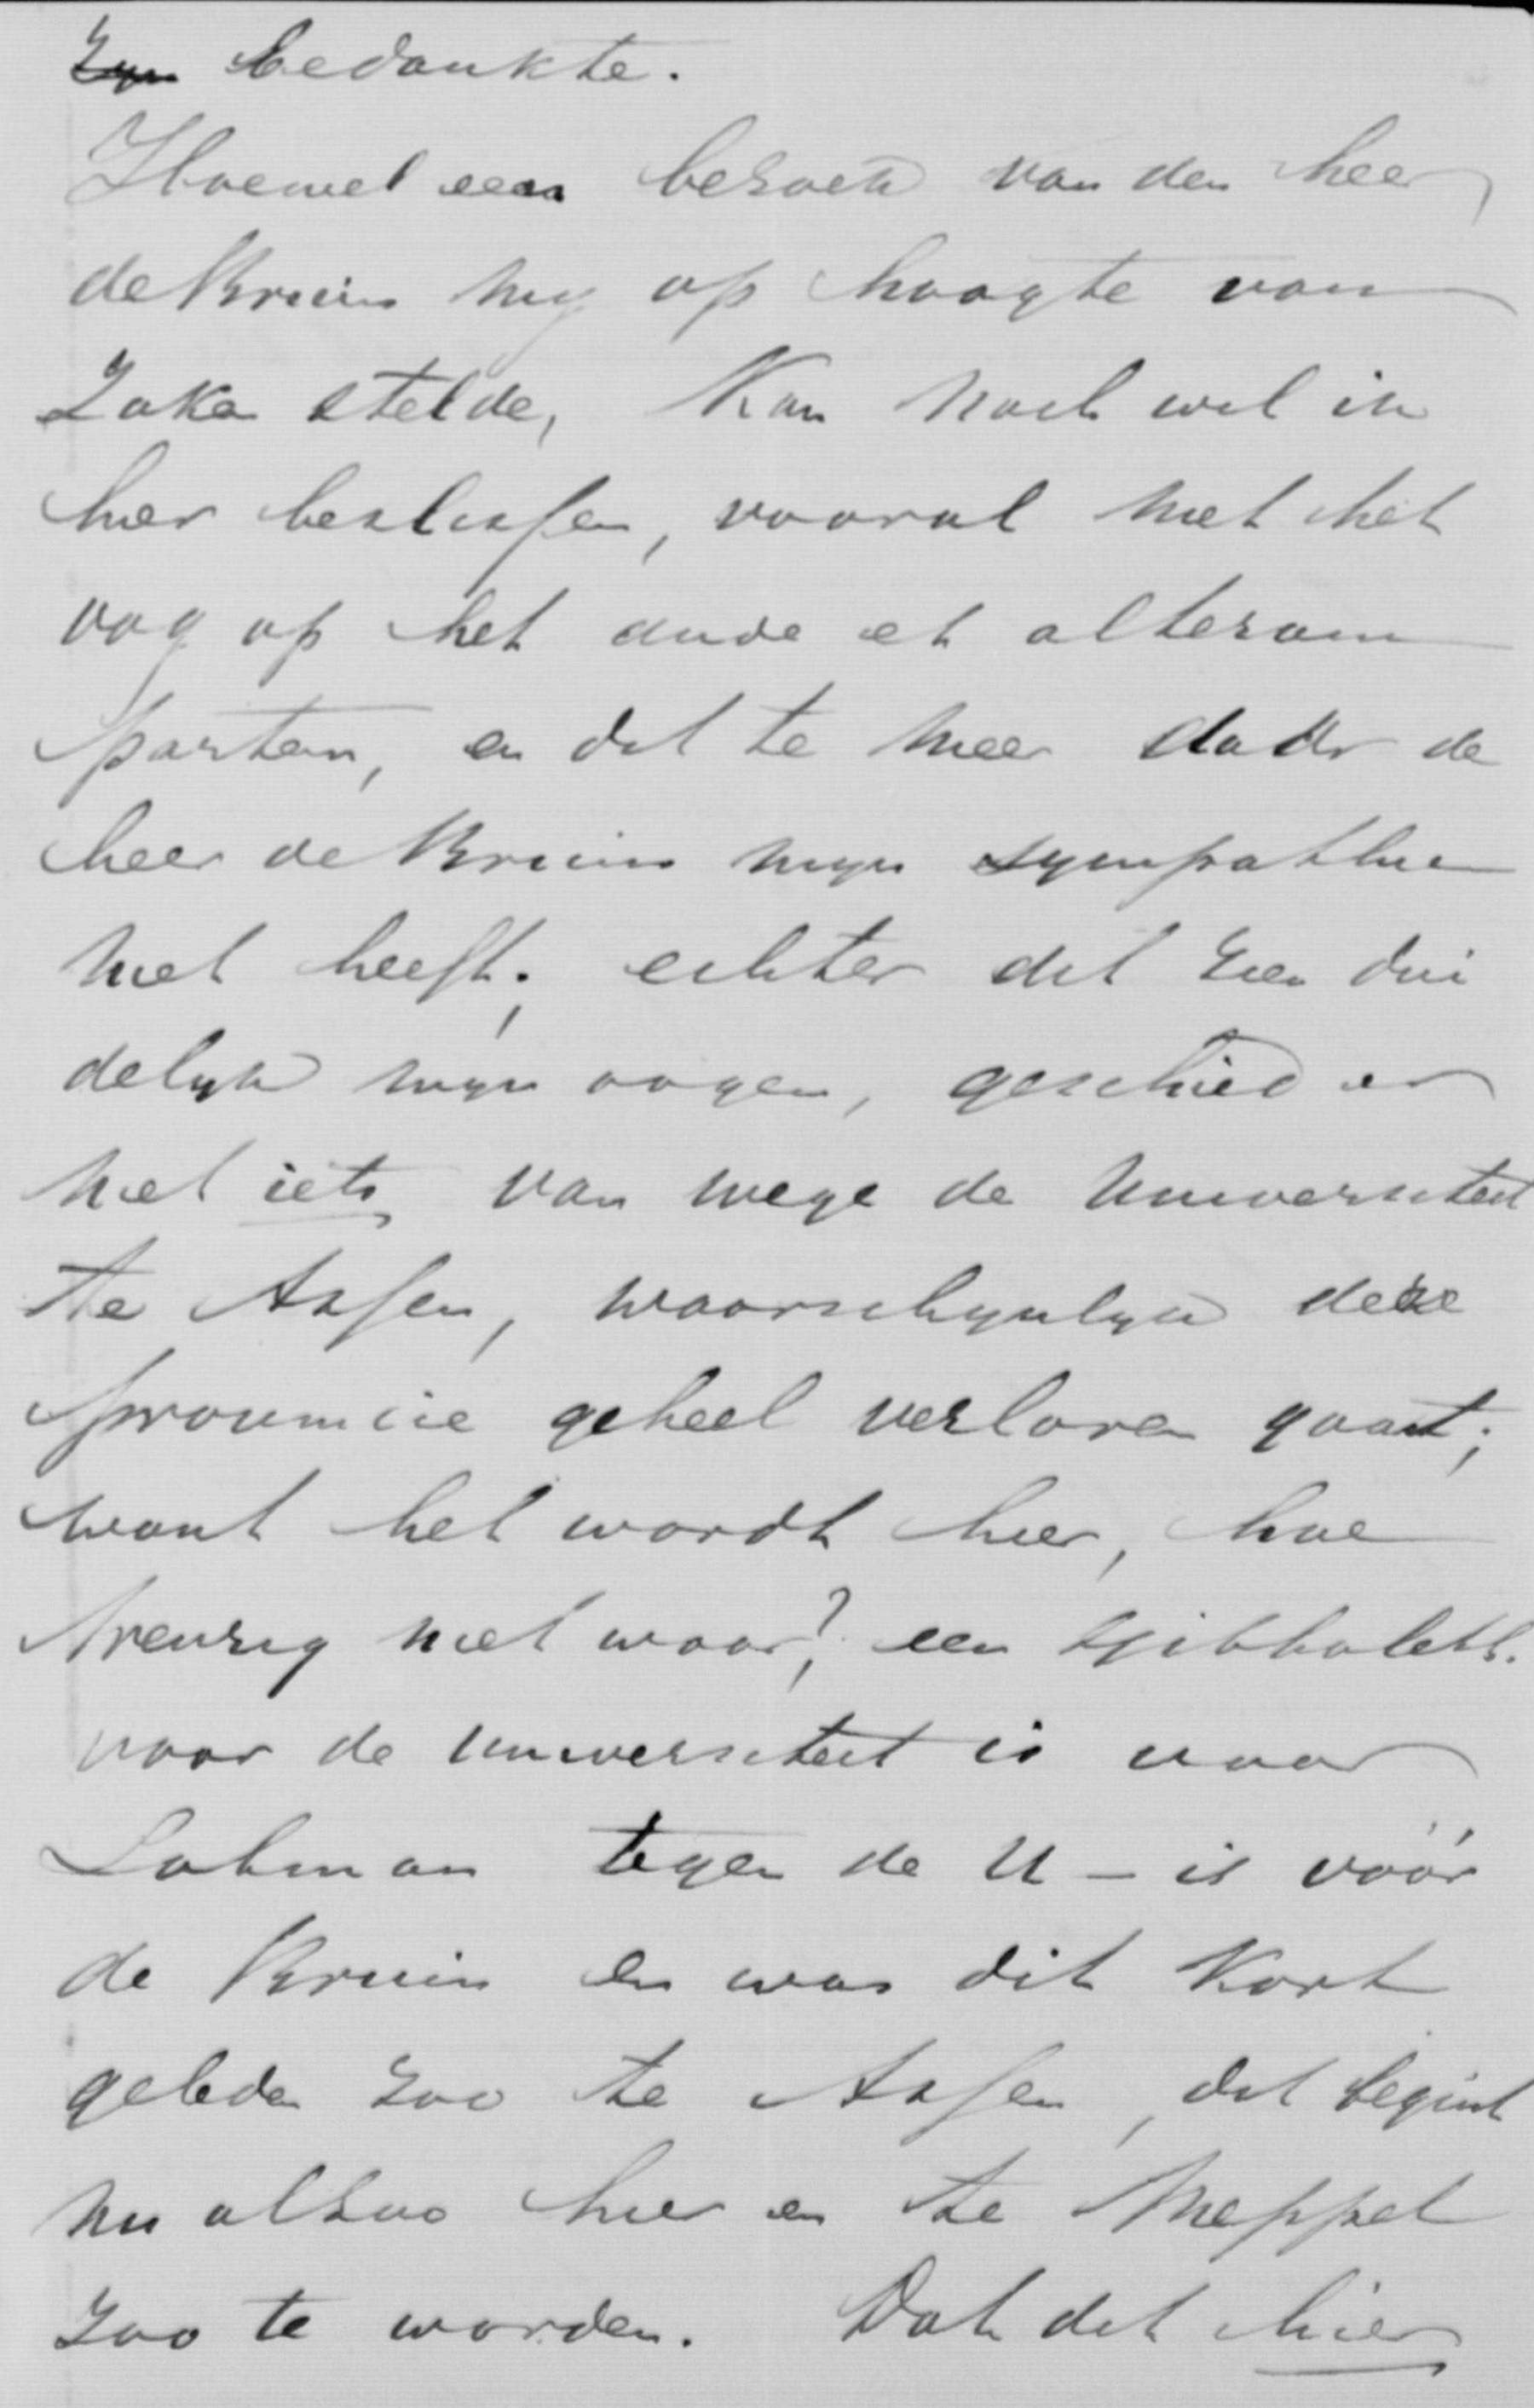 bedankte.
Hoewel een bezoek van den heer
de Bruin my op hoogte van
zaken stelde, kan noch wil ik
hier beslissen, vooral met het
oog op het aude et alteram
partem, en dat te meer daar de
heer de Bruin myn sympathie
niet heeft; echter dit zien dui
delyk myn oogen, geschied er
niet iets van wege de Universiteit
te Assen, waarschynlyk deze
provincie geheel verloren gaat;
want het wordt hier, hoe
treurig niet waar? een sjibboleth.
voor de universiteit is voor
Lohman tegen de U - is vóór
de Bruin en was dit kort
geleden zoo te Assen, dat begint
nu alzoo hier en te Meppel
zoo te worden. Dat dit hier